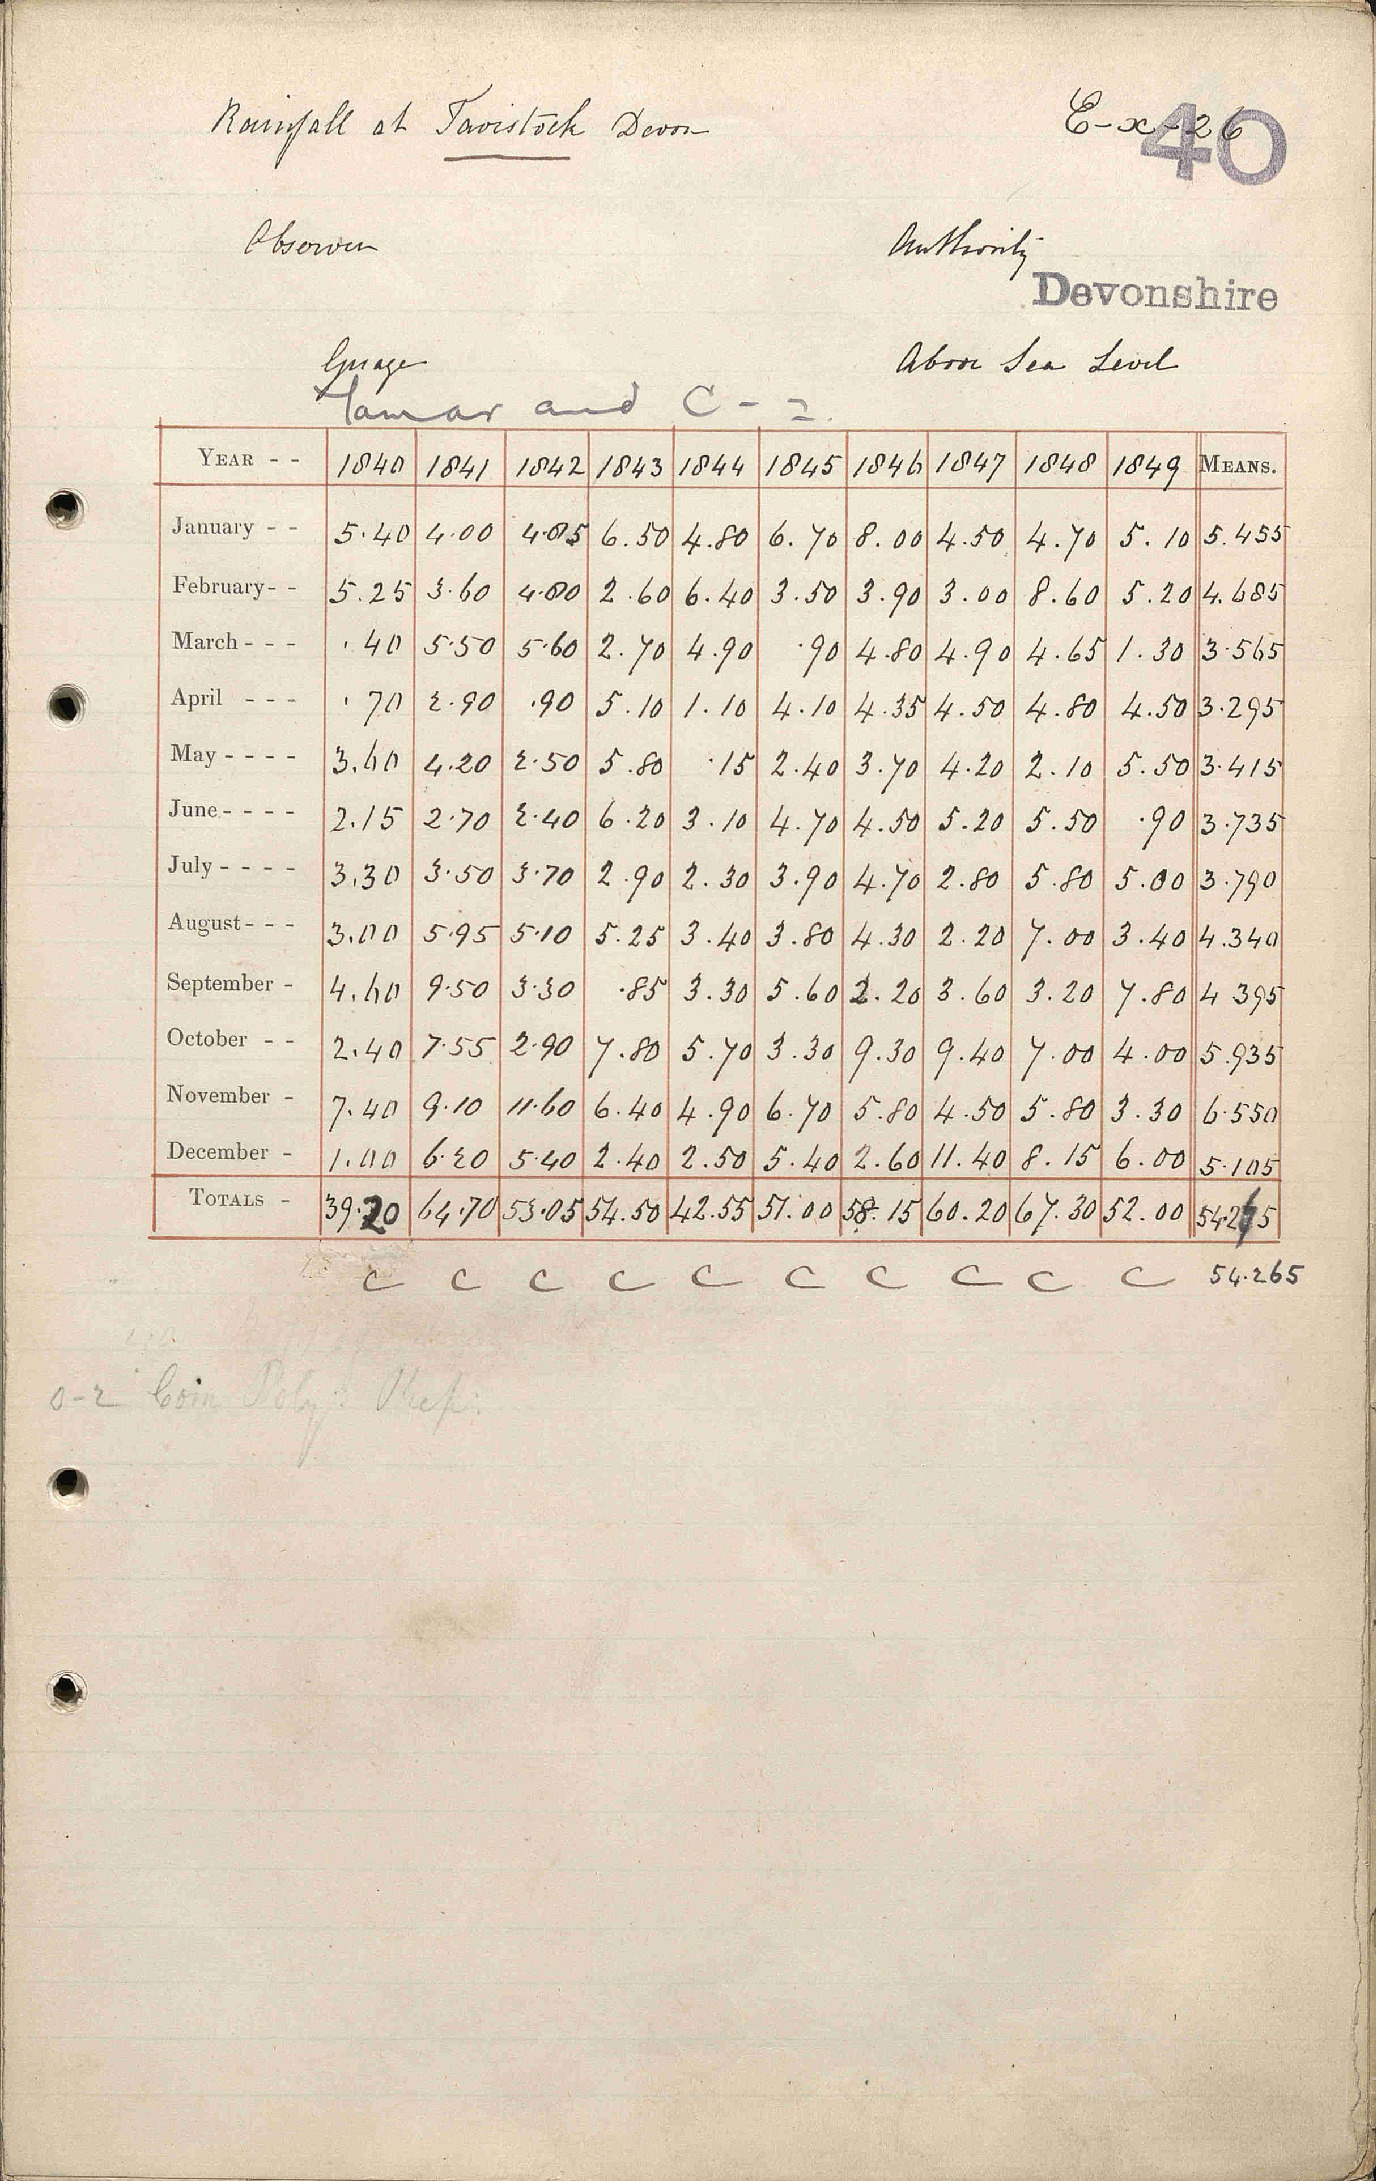 Rainfall at Tavistock Devon
E-x-26
40
Observer
Authority
Devonshire
Guage
Above Sea Level
Tamar and C-2.
YEAR - - 1840 1841 1842 1843 1844 1845 1846 1847 1848 1849 MEANS.
January - - 5.40 4.00 4.05 6.50 4.80 6.70 8.00 4.50 4.70 5.10 5.455
February - - 5.25 3.60 4.80 2.60 6.40 3.50 3.90 3.00 8.60 5.20 4.685
March - - - .40 5.50 5.60 2.70 4.90 .90 4.80 4.90 4.65 1.30 3.565
April - - - .70 2.90 .90 5.10 1.10 4.10 4.35 4.50 4.80 4.50 3.295
May - - - - 3.60 4.20 2.50 5.80 .15 2.40 3.70 4.20 2.10 5.50 3.415
June - - - - 2.15 2.70 2.40 6.20 3.10 4.70 4.50 5.20 5.50 .90 3.735
July - - - - 3.30 3.50 3.70 2.90 2.30 3.90 4.70 2.80 5.80 5.00 3.790
August - - - 3.00 5.95 5.10 5.25 3.40 3.80 4.30 2.20 7.00 3.40 4.340
September - 4.60 9.50 3.30 .85 3.30 5.60 2.20 3.60 3.20 7.80 4 395
October - - 2.40 7.55 2.90 7.80 5.70 3.30 9.30 9.40 7.00 4.00 5.935
November - 7.40 9.10 11.60 6.40 4.90 6.70 5.80 4.50 5.80 3.30 6.550
December - 1.00 6.20 5.40 2.40 2.50 5.40 2.60 11.40 8.15 6.00 5.105
TOTALS - 39.20 64.70 53.05 54.50 42.55 51.00 58.15 60.20 67.30 52.00 54.265
C C C C C C C C C C 54.265
0-2 Coin Poly: